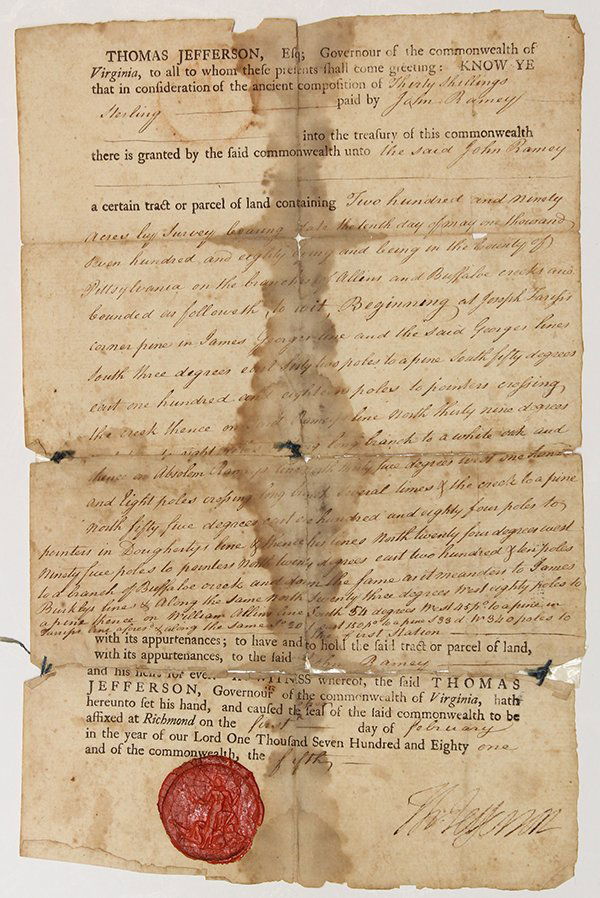 THOMAS JEFFERSON, Esq; Governour of the commonwealth of
Virginia, to all to whom these presents shall come greeting: KNOW YE
that in consideration of the ancient composition of Thirty Shillings
Sterling paid by John Ramey
into the treasury of this commonwealth
there is granted by the said commonwealth unto the said John Ramey
a certain tract or parcel of land containing Two hundred and Ninety
Acres by Survey bearing date the tenth day of may one thousand
Seven hundred and eighty lying and being in the County of
Pittsylvania on the branches of Allins and Buffaloe creeks and
bounded as followeth, to wit, Beginning at Joseph
corner pine in James Georges line and the said Georges lines
South three degrees east Sixty two poles to a pine South fifty degrees
east one hundred and eighteen poles to pointers crossing
the creek thence on Rameys line North thirty nine degrees
branch to a white oak and
thence on Absolem Rameys line North thirty five degrees west one hund
and Eight poles crossing long branch Several times & the creek to a pine
North fifty five degrees east one hundred and eighty four poles to
pointers in Dougherty's line & thence his lines North twenty four degrees west
Ninety five poles to pointers North twenty degrees east two hundred & ten poles
to a branch of Buffaloe creek and down the same as it meanders to James
line & Along the same North Seventy three degrees West eighty poles to
a pine thence on William Allins line South 54 degrees West 45 po. to a pine in
line & along the same So. 20 East 130 po. to a pine S 38 d. W 340 poles to
the first Station
with its appurtenances; to have and to hold the said tract or parcel of land,
with its appurtenances, to the said John Ramey
and his heirs for ever. IN WITNESS whereof, the said THOMAS
JEFFERSON, Governour of the commonwealth of Virginia, hath
hereunto set his hand, and caused the seal of the said commonwealth to be
affixed at Richmond on the first day of february
in the year of our Lord One Thousand Seven Hundred and Eighty one
and of the commonwealth, the fifth
Th: Jefferson